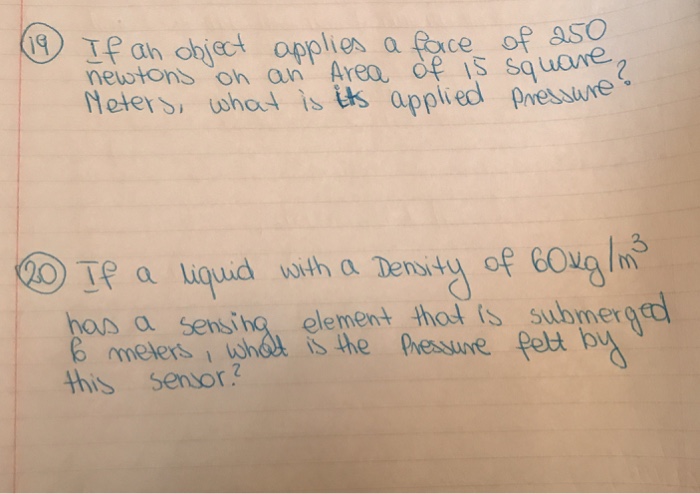 19 If an object applies a force of 250
newtons on an Area of 15 square
Meters, what is its applied Pressure?
20 If a liquid with a Density of 60kg/m³
has a sensing element that is submerged
6 meters, what is the Pressure felt by
this sensor?